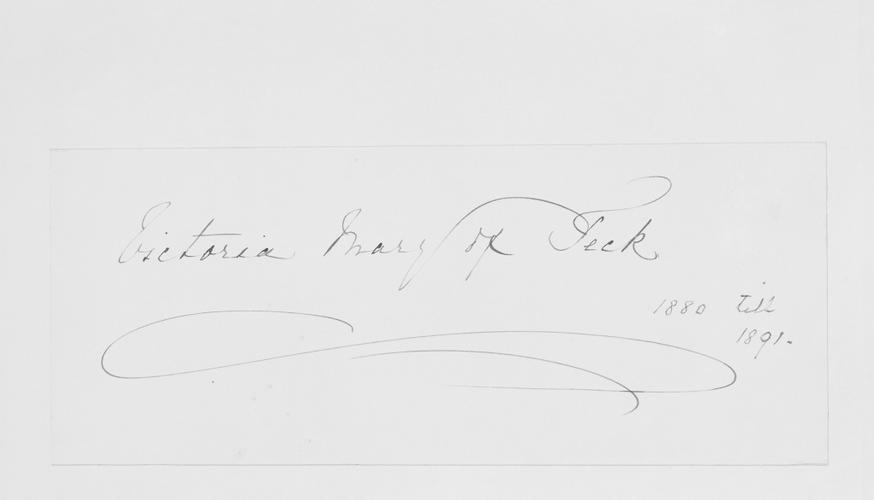 Victoria Mary of Teck
1880 till
1891.